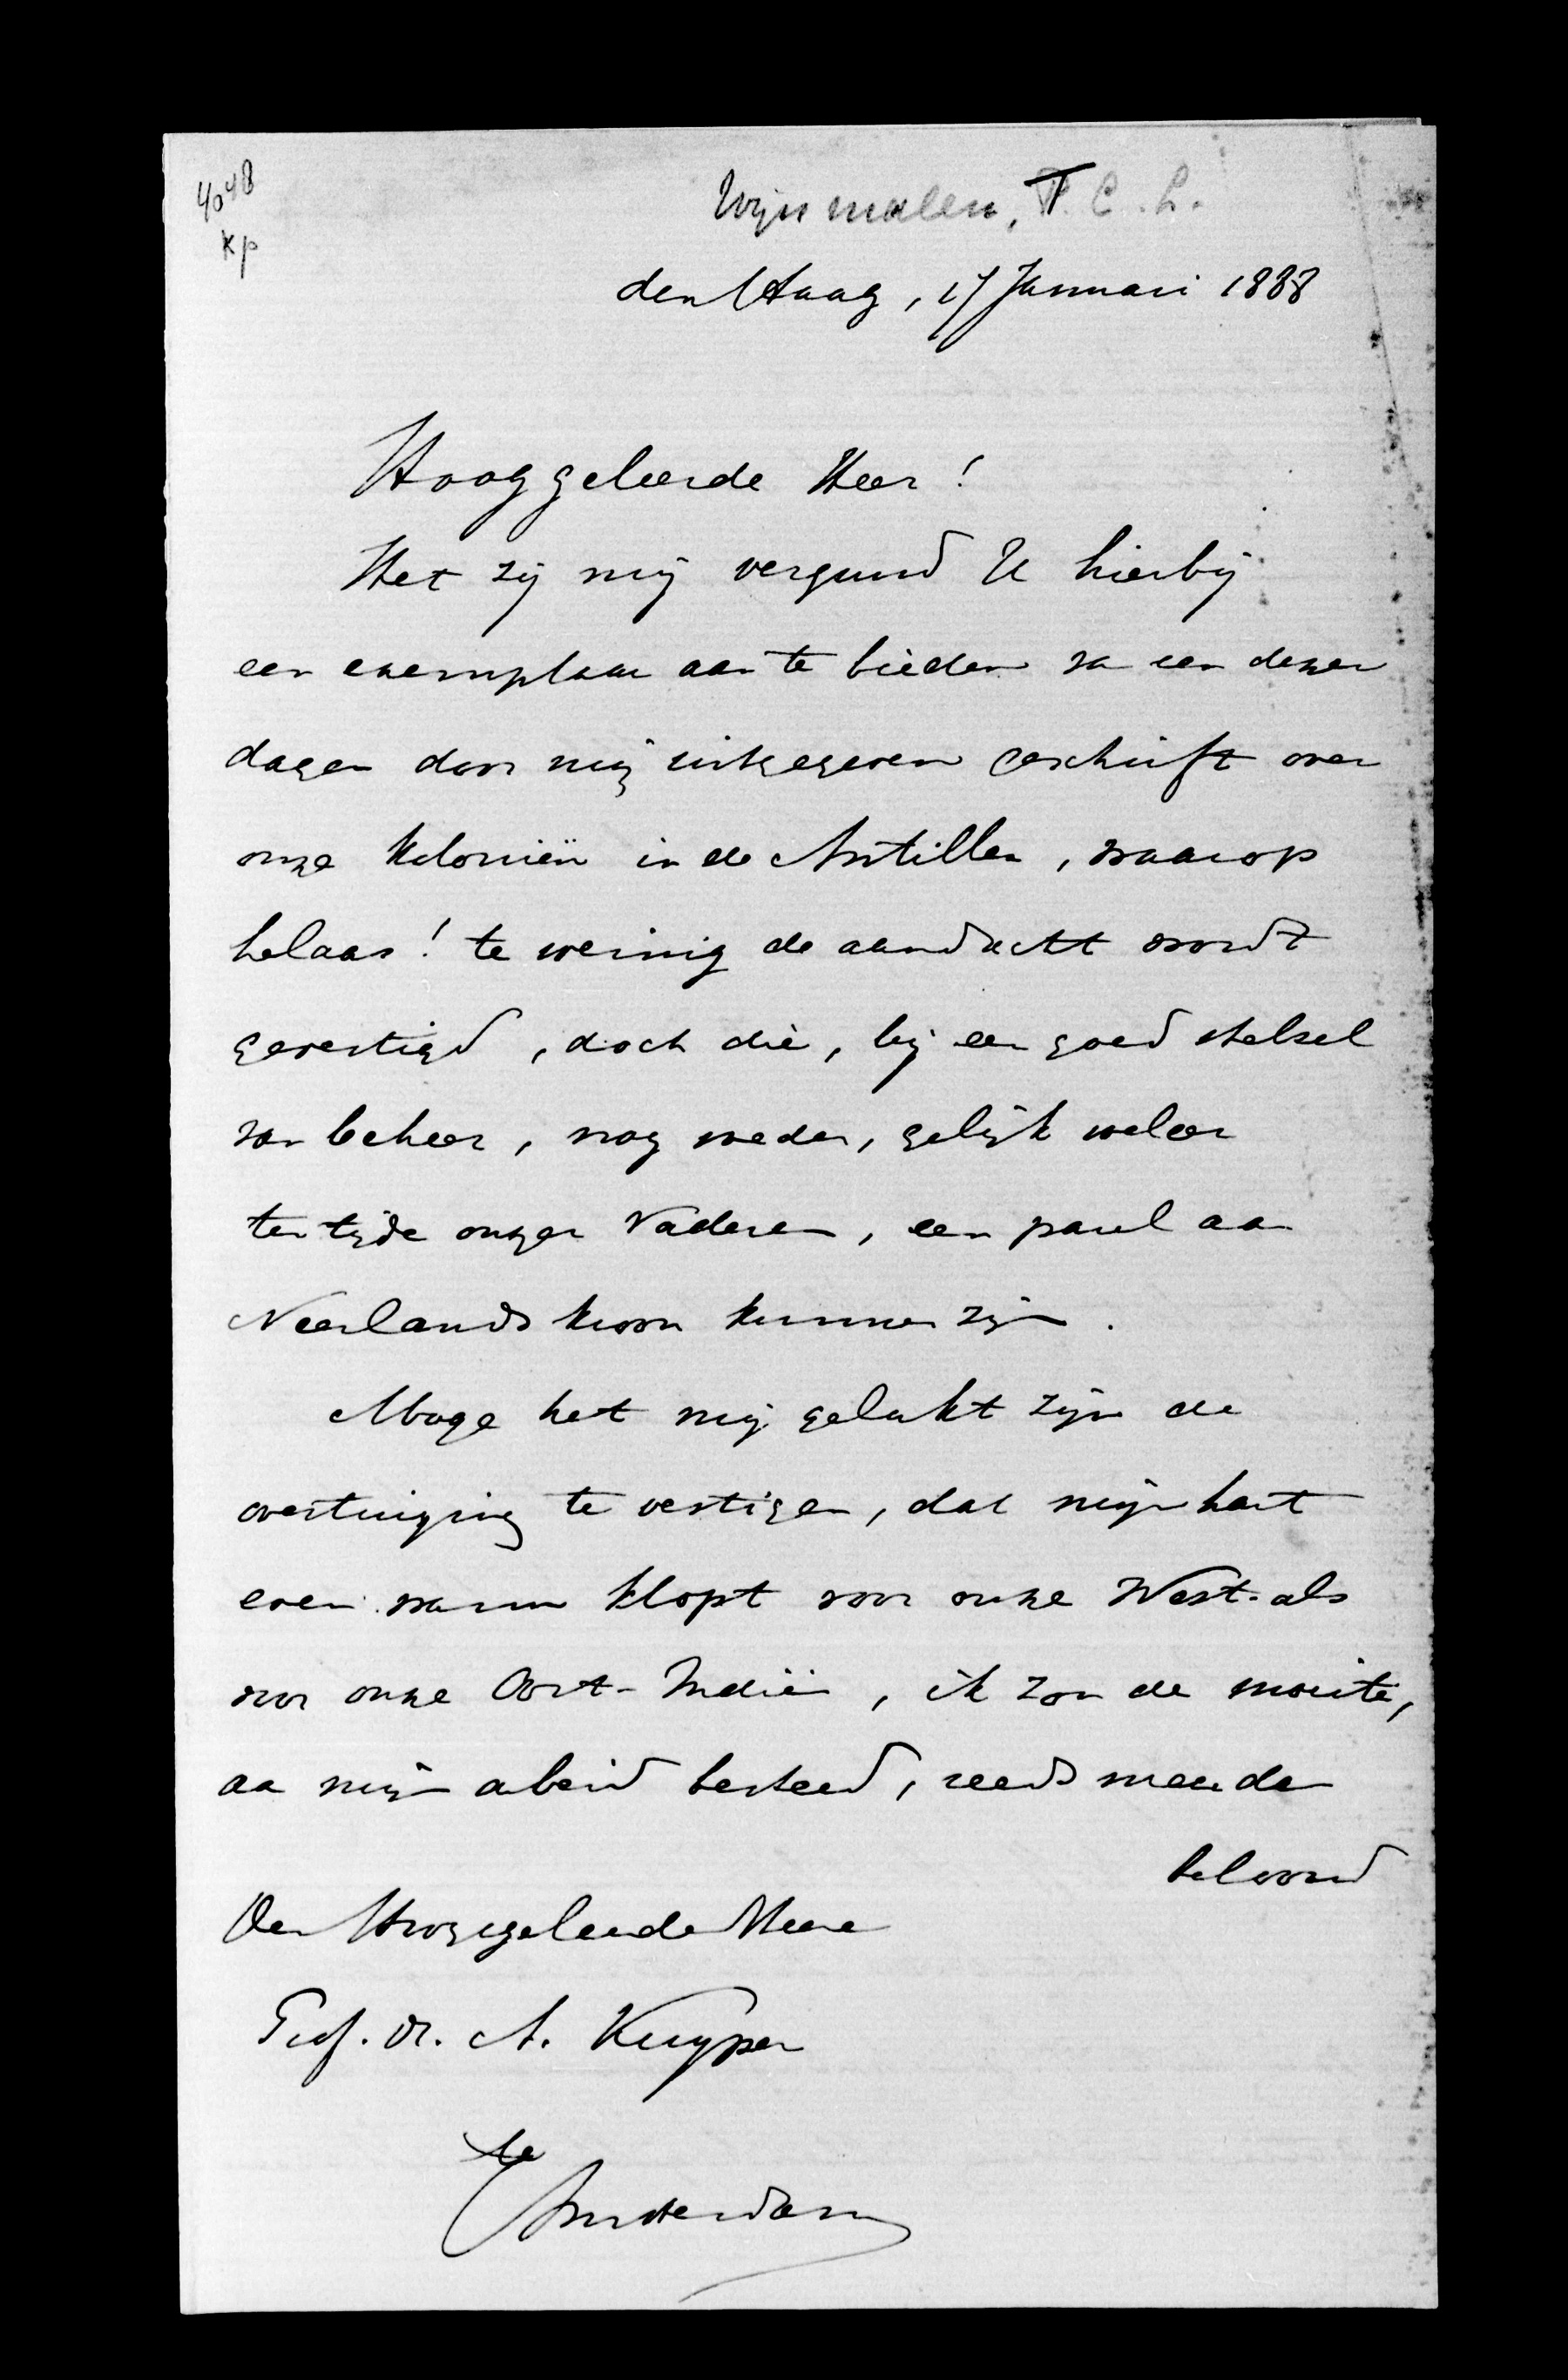 4048
Kp
Wijnmalen, T. C. L.
den Haag, 17 Januari 1888
Hooggeleerde Heer!
Het zij mij vergund U hierbij
een exemplaar aan te bieden van een dezer
dagen door mij uitgegeven geschrift over
onze Koloniën in de Antillen, waarop
helaas! te weinig de aandacht wordt
gevestigd, doch die, bij een goed stelsel
van beheer, nog weder, gelijk weleer
ten tijde onzer Vaderen, een parel aan
Neerlands kroon kunnen zijn.
Moge het mij gelukt zijn de
overtuiging te vestigen, dat mijn hart
even warm klopt voor onze West- als
voor onze Oost-Indiën, ik zou de moeite,
aan mijn arbeid besteed, reeds meenden
beloond
Den Hooggeleerden Heere
Prof. Dr. A. Kuyper
te
Amsterdam